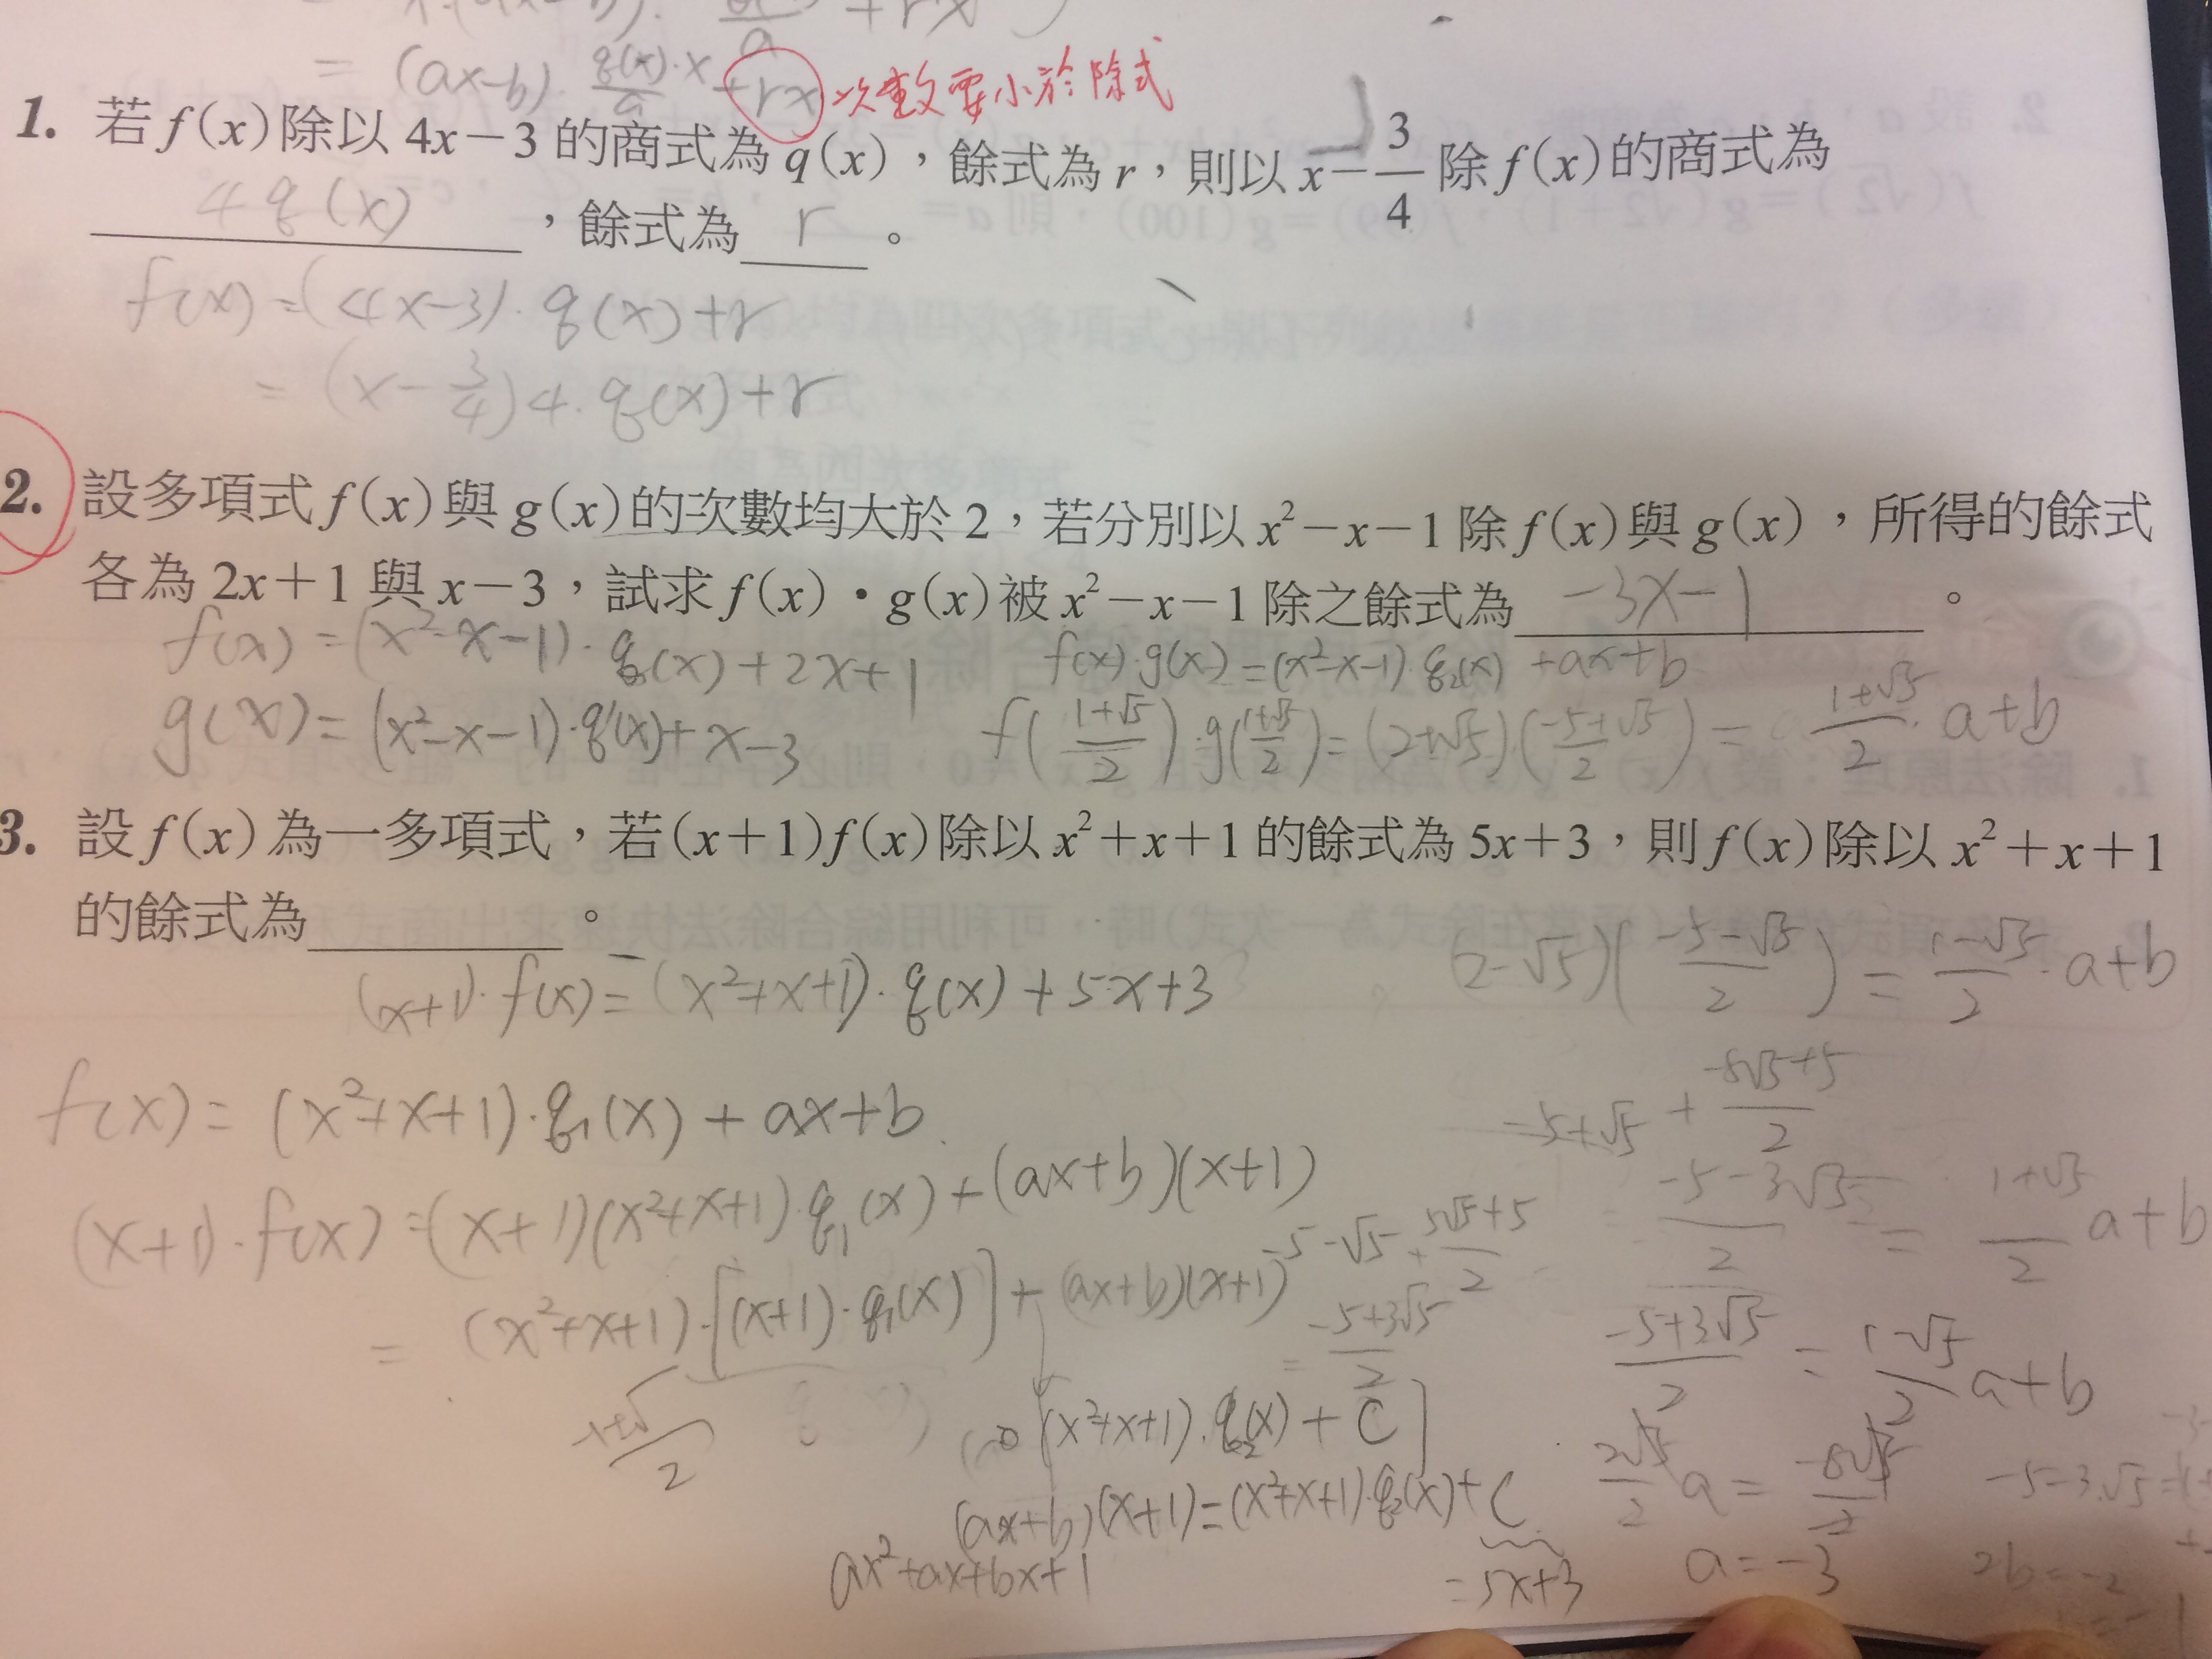 = (ax-b)·q(x)/a·x+rx 次數要小於除式
1. 若f(x)除以4x-3的商式為q(x),餘式為r,則以x-3/4除f(x)的商式為
4q(x),餘式為r。
f(x)=(4x-3)·q(x)+r
=(x-3/4)4·q(x)+r
2. 設多項式f(x)與g(x)的次數均大於2,若分別以x²-x-1除f(x)與g(x),所得的餘式
各為2x+1與x-3,試求f(x)·g(x)被x²-x-1除之餘式為 -3x-1 。
f(x)=(x²-x-1)·q(x)+2x+1
f(x)·g(x)=(x²-x-1)·q₂(x)+ax+b
g(x)=(x²-x-1)·q'(x)+x-3
f((1+√5)/2)·g((1+√5)/2)=(2+√5)·((-5+√5)/2)=(1+√5)/2·a+b
3. 設f(x)為一多項式,若(x+1)f(x)除以x²+x+1的餘式為5x+3,則f(x)除以x²+x+1
的餘式為 。
(2-√5)((-5-√5)/2)=(1-√5)/2·a+b
(x+1)·f(x)=(x²+x+1)·q(x)+5x+3
f(x)=(x²+x+1)·q₁(x)+ax+b
-5+√5+(-5√5+5)/2
(x+1)·f(x)=(x+1)(x²+x+1)·q₁(x)+(ax+b)(x+1)
=(-5-3√5)/2=(1+√5)/2 a+b
-5-√5+(5√5+5)/2
=(x²+x+1)·[(x+1)·q₁(x)]+(ax+b)(x+1)
=(-5+3√5)/2
(-5+3√5)/2=(1-√5)/2 a+b
(x²+x+1)·q₂(x)+C]
2√5/2 a=
(ax+b)(x+1)=(x²+x+1)·q₂(x)+C
=5x+3
ax²+ax+bx+1
a=-3
2b=-2